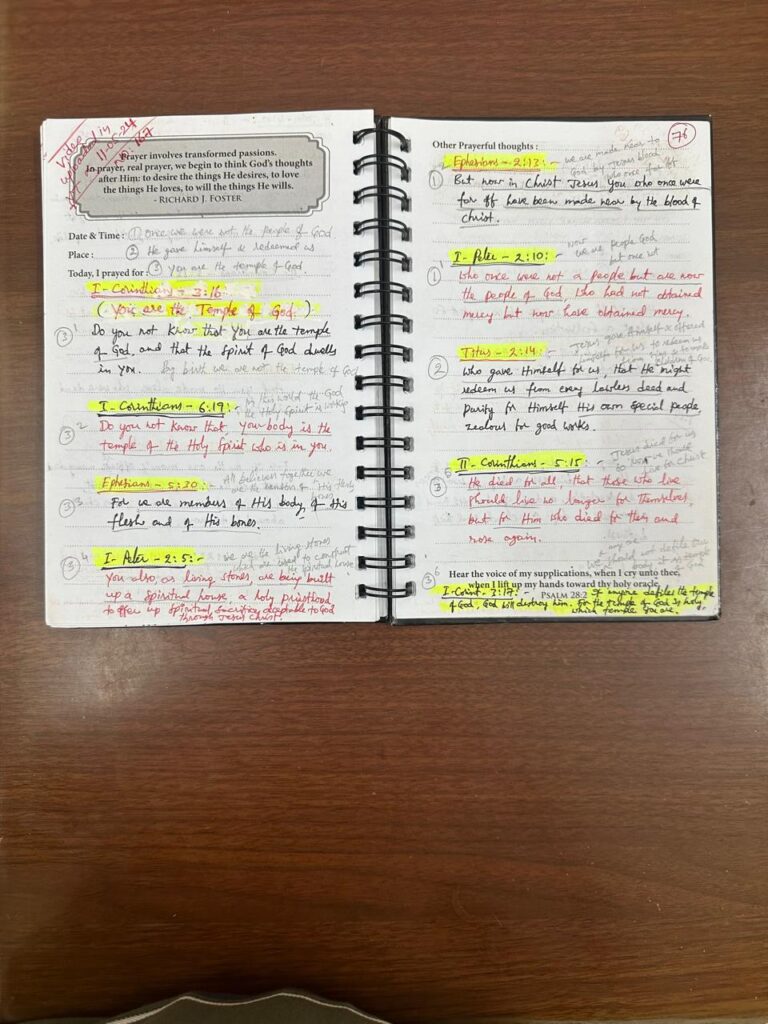 Video
uploaded in
11-05-24
167
Prayer involves transformed passions.
In prayer, real prayer, we begin to think God's thoughts
after Him: to desire the things He desires, to love
the things He loves, to will the things He wills.
- RICHARD J. FOSTER
Date & Time : ① once we were not the people of God
Place : ② He gave himself & redeemed us
Today, I prayed for : ③ You are the temple of God
I - Corinthians - 3:16
( You are the Temple of God. )
③ 1 Do you not know that you are the temple
of God, and that the Spirit of God dwells
in you. by birth we are not the temple of God
I - Corinthians - 6:19 :-
③ 2 Do you not know that your body is the
temple of the Holy Spirit who is in you.
Ephesians - 5:30 :- All believers together we
are the
③ 3 For we are members of His body, of His
flesh and of His bones.
③ 4 I - Peter - 2:5 :- we are the living stones
You also, as living stones, are being built
up a spiritual house, a holy priesthood
to offer up spiritual sacrifices acceptable to God
through Jesus Christ.
76
Other Prayerful thoughts :
Ephesians - 2:13 :- we are made near to
God by Jesus blood
who once far off
① But now in Christ Jesus you who once were
far off have been made near by the blood of
Christ.
I - Peter - 2:10 :- now
we are people God
but once not
① who once were not a people but are now
the people of God, who had not obtained
mercy but now have obtained mercy.
Titus - 2:14 :- Jesus gave himself & offered
himself for us to redeem us
② who gave Himself for us, that He might
redeem us from every lawless deed and
purify for Himself His own special people,
zealous for good works.
II - Corinthians - 5:15 - Jesus died for us
live for Christ
③ 5 He died for all, that those who live
should live no longer for themselves,
but for Him who died for them and
rose again.
Hear the voice of my supplications, when I cry unto thee,
when I lift up my hands toward thy holy oracle.
PSALM 28:2
③ 6 I - Corint - 3:17 :- If anyone defiles the temple
of God, God will destroy him. For the temple of God is holy,
which temple you are.